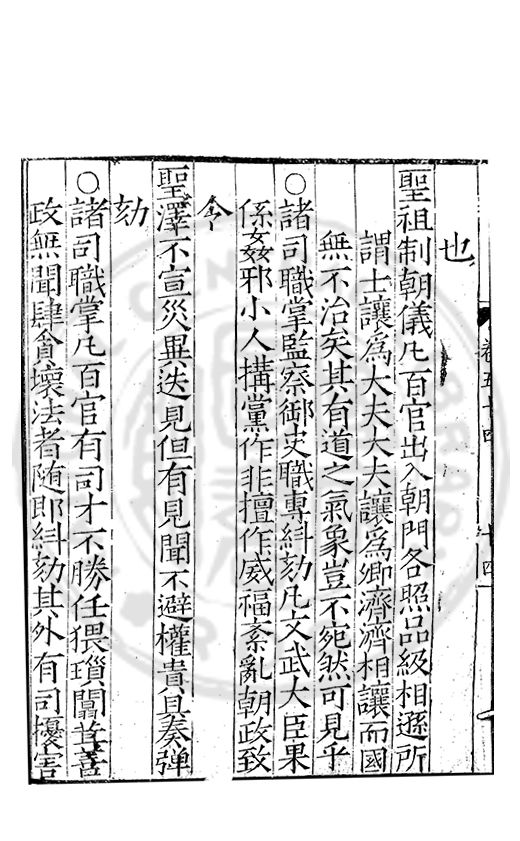 卷五十四
十四
也
聖祖制朝儀凡百官出入朝門各照品級相遜所
謂士讓為大夫大夫讓為卿濟濟相讓而國
無不治矣其有道之氣象豈不宛然可見乎
○諸司職掌監察御史職專糾劾凡文武大臣果
係姦邪小人搆黨作非擅作威福紊亂朝政致
令
聖澤不宣災異迭見但有見聞不避權貴具奏彈
劾
○諸司職掌凡百官有司才不勝任猥瑣闒茸善
政無聞肆貪壞法者隨即糾劾其外有司擾害